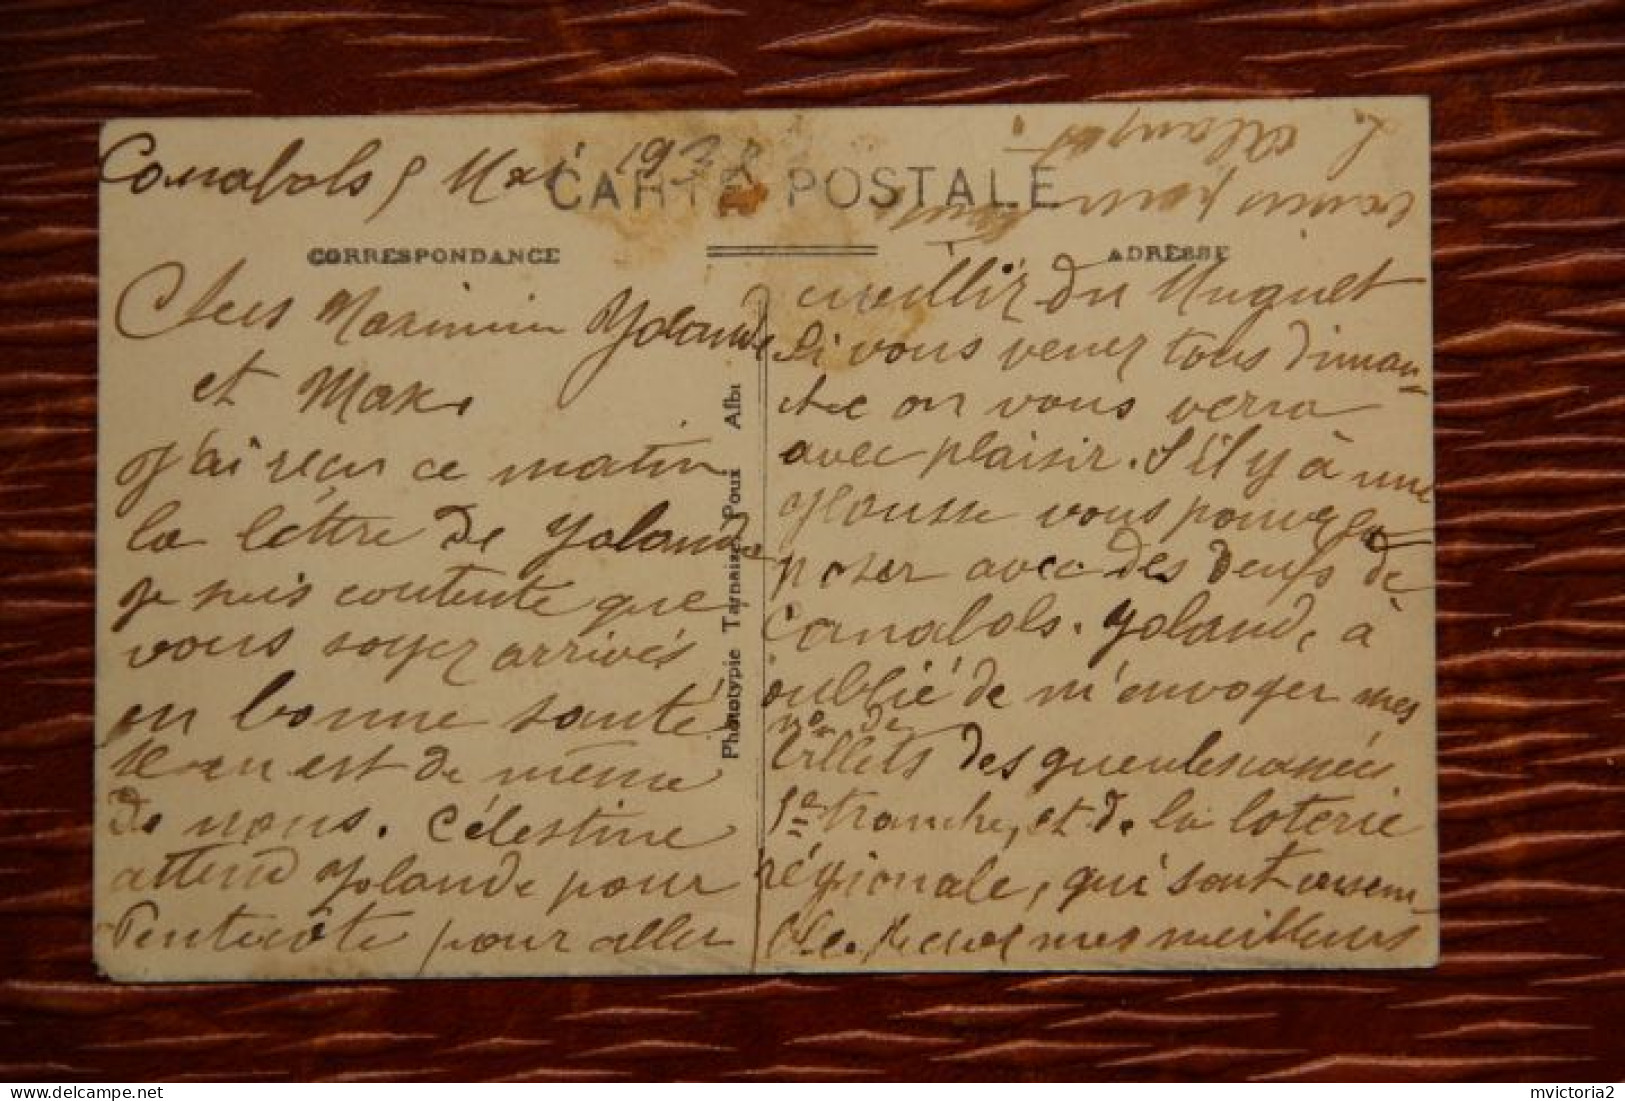 Canabols 5 Mai 1938
CARTE POSTALE
CORRESPONDANCE
ADRESSE
Chers Maximin Yolande
et Max.
J'ai reçu ce matin
la lettre de Yolande
je suis contente que
vous soyez arrivés
en bonne santé
il en est de même
de nous. Célestine
attend Yolande pour
Pentecôte pour aller
Phototypie Tarnaise Poux Albi
cueillir du Muguet
Si vous venez tous diman-
che on vous verra
avec plaisir. S'il y à une
glousse vous pouvez la
poser avec des œufs de
Canabols. Yolande à
oublié de m'envoyer mes
nos de
billets des gueules cassées
tranche, et de la loterie
régionale, qui sont ensem
ble. Recevez mes meilleurs
pour
mvictoria2